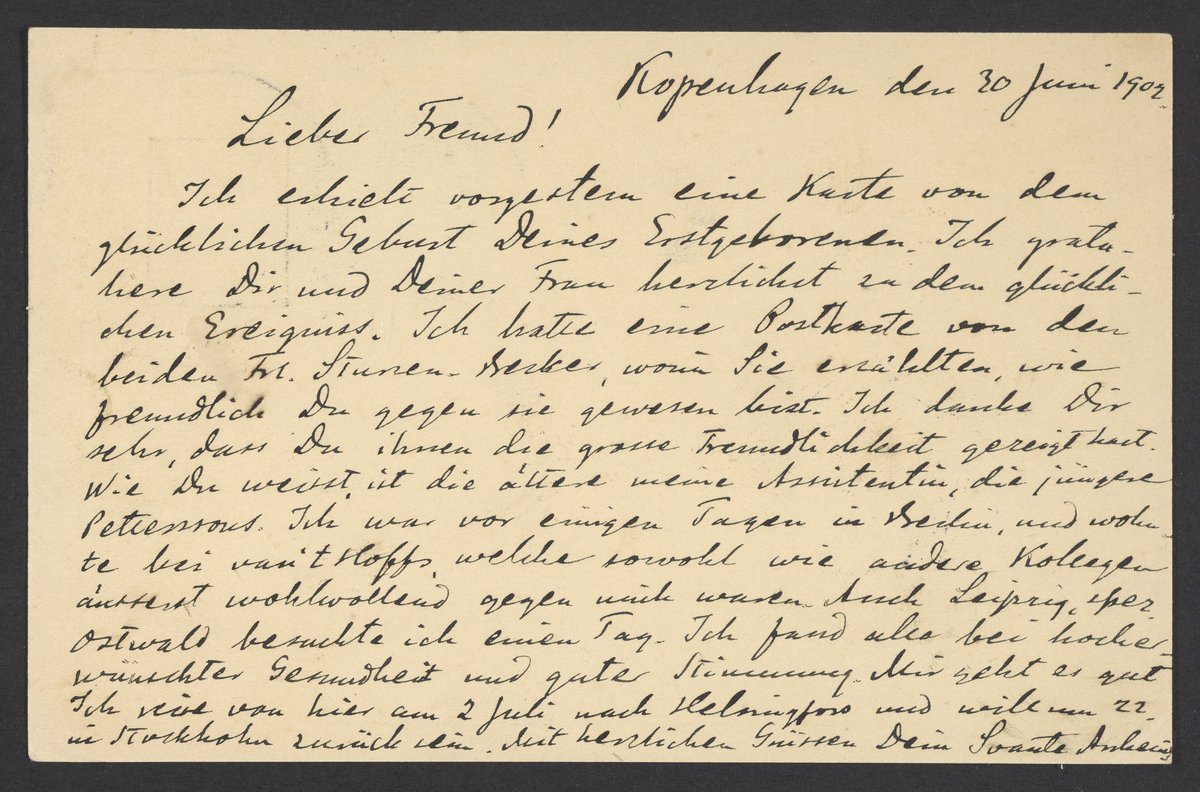 Kopenhagen den 30 Juni 1902.
Lieber Freund!
Ich erhielt vorgestern eine Karte von dem
glücklichen Geburt Deines Erstgeborenen. Ich gratu-
liere Dir und Deiner Frau herzlichst zu dem glückli-
chen Ereigniss. Ich hatte eine Postkarte von den
beiden Frl. Sturzen-Becker, worin Sie erzählten, wie
freundlich Du gegen sie gewesen bist. Ich danke Dir
sehr, dass Du ihnen die grosse Freundlichkeit gezeigt hast.
Wie Du weisst, ist die ältere meine Assitentin, die jüngere
Petterssons. Ich war vor einigen Tagen in Berlin, und wohn
te bei van't Hoffs, welche sowohl wie andere Kollegen
äusserst wohlwollend gegen mich waren. Auch Leipzig, spez.
Ostwald besuchte ich einen Tag. Ich fand alle bei hocher-
wünschter Gesundheit und guter Stimmung. Mir geht es gut
Ich reise von hier am 2 Juli nach Helsingfors und will um 22.
in Stockholm zurück sein. Mit herzlichen Grüssen Dein Svante Arrhenius